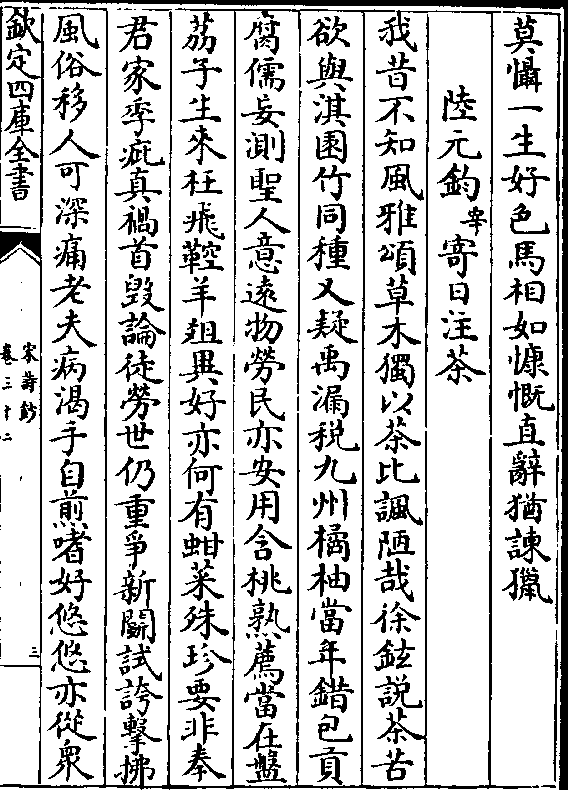 莫懾一生好色馬相如慷慨直辭猶諫獵
陸元鈞宰寄日注茶
我昔不知風雅頌草木獨以茶比諷陋哉徐鉉説茶苦
欲與淇園竹同種又疑禹漏税九州橘柚當年錯包貢
腐儒妄測聖人意逺物勞民亦安用含桃熟薦當在盤
荔子生來枉飛鞚羊爼異好亦何有蚶菜殊珍要非奉
君家季疵真禍首毀論徒勞世仍重爭新鬭試誇擊拂
風俗移人可深痛老夫病渴手自煎嗜好悠悠亦從衆
欽定四庫全書
宋詩鈔
卷三十二
三